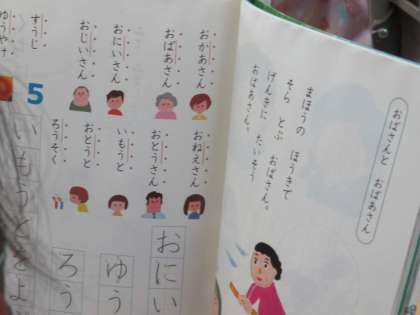 おばさんと おばあさん
まほうの ほうきで
そら とぶ おばさん。
げんきに たいそう
おばあさん。
おかあさん
おばあさん
おにいさん
おじいさん
すうじ
ゆうやけ
おねえさん
おとうさん
いもうと
おとうと
ろうそく
5
おにい
ゆう
ろう
いもうととよ